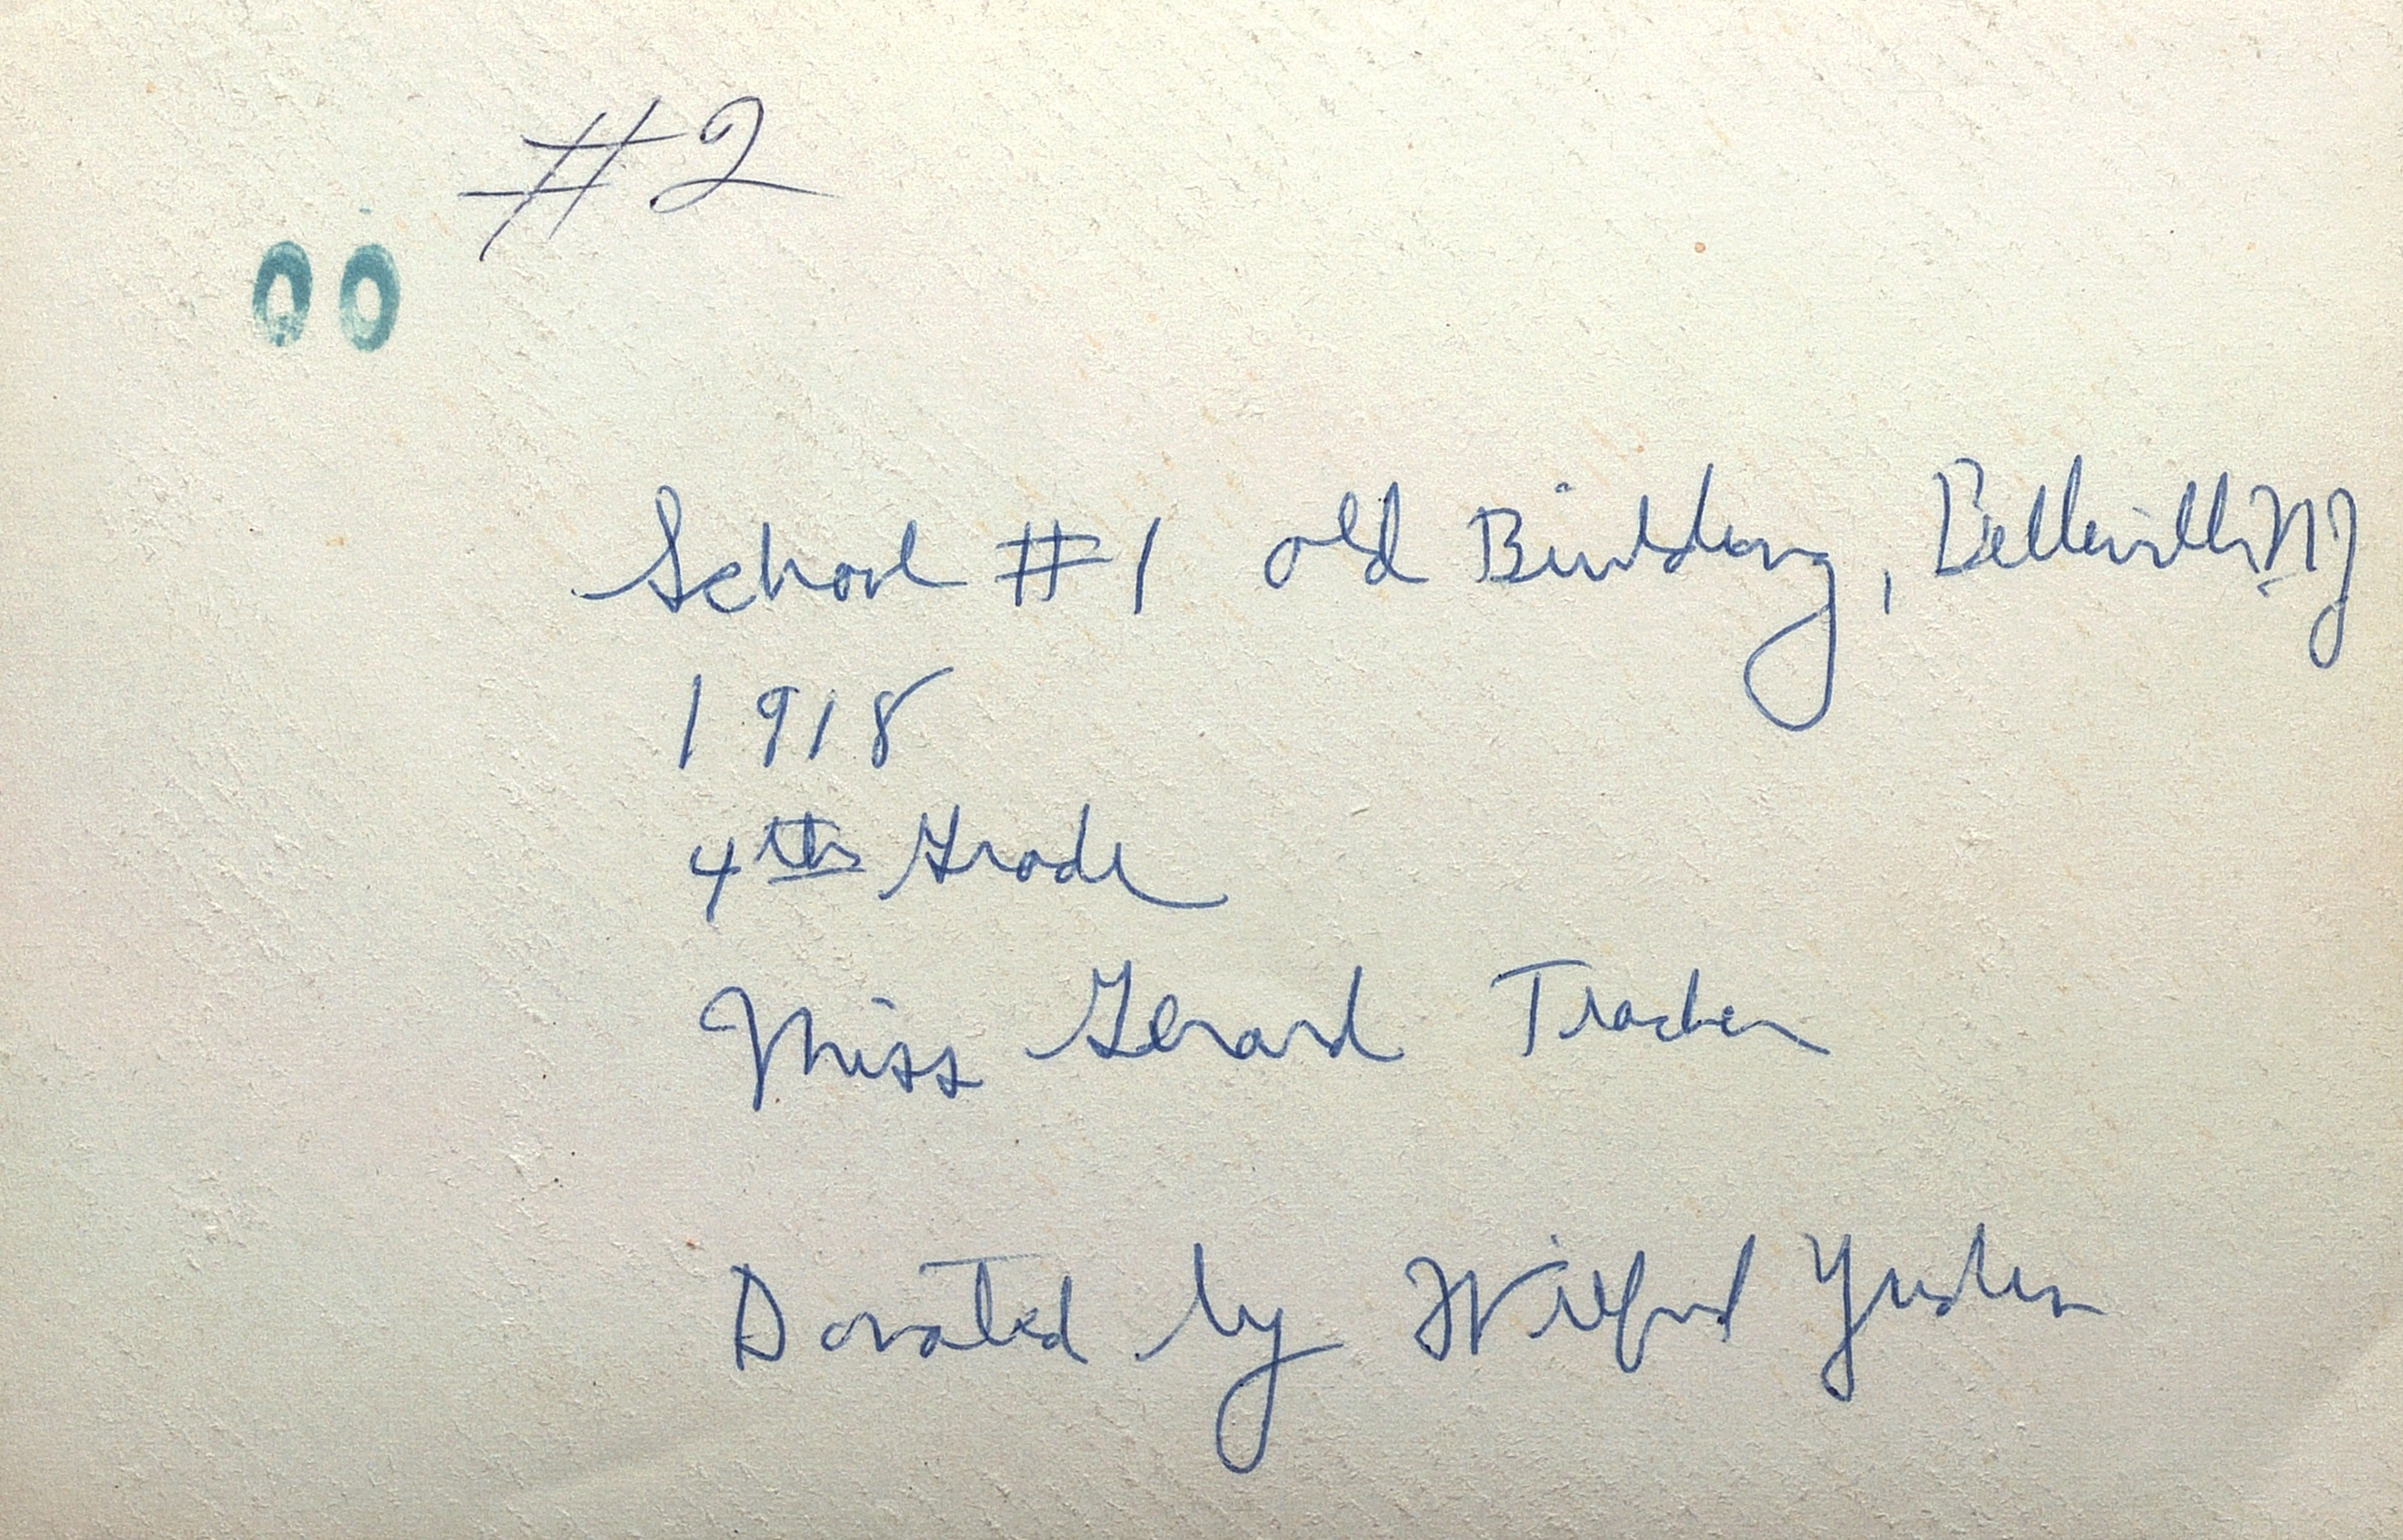 #2
00
School #1 old Building, Belleville NJ
1918
4th Grade
Miss Gerard Teacher
Donated by Wilfred